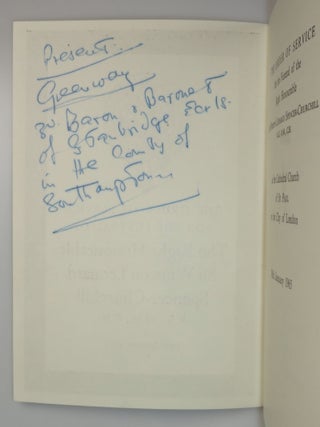 Present:
Greenway
IIIrd. Baron & Baronet
of Stanbridge Earls.
in the County of
Southampton
THE ORDER OF SERVICE
for the Funeral of the
Right Honourable
SPENCER-CHURCHILL
in the Cathedral Church
of St. Paul
in the City of London
January 1965
The Right Honourable
Sir Winston Leonard
Spencer-Churchill